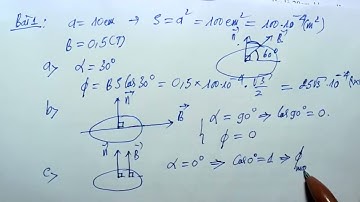 Bài 1: a = 10 cm → S = a² = 100 cm² = 100.10⁻⁴ (m²)
B = 0,5 (T)
n B 60°
a) α = 30°
ϕ = BS cos 30° = 0,5 × 100.10⁻⁴ . √3/2 = 25√3 . 10⁻⁴
b) n B
α = 90° ⇒ cos 90° = 0.
ϕ = 0
c) n B
α = 0° ⇒ cos 0° = 1 ⇒ ϕ